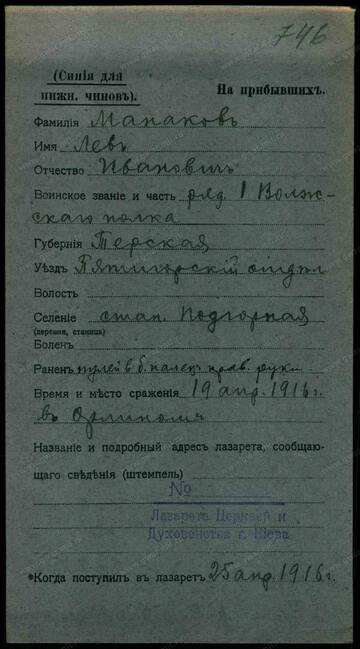 746
(Синія для
нижн. чиновъ).
На прибывшихъ.
Фамилія Манаковъ
Имя Левъ
Отчество Ивановичъ
Воинское званіе и часть ряд. 1 Волж-
скаго полка
Губернія Терская
Уѣздъ Пятигорскій отдѣл
Волость
Селеніе стан. Подгорная
(деревня, станица)
Боленъ
Раненъ пулей в б. палец прав. руки
Время и мѣсто сраженія 19 апр. 1916 г.
въ
Названіе и подробный адресъ лазарета, сообщаю-
щаго свѣдѣнія (штемпель)
№
Лазаретъ Церквей и
Духовенства г. Кіева
*Когда поступилъ въ лазаретъ 25 апр 1916 г.